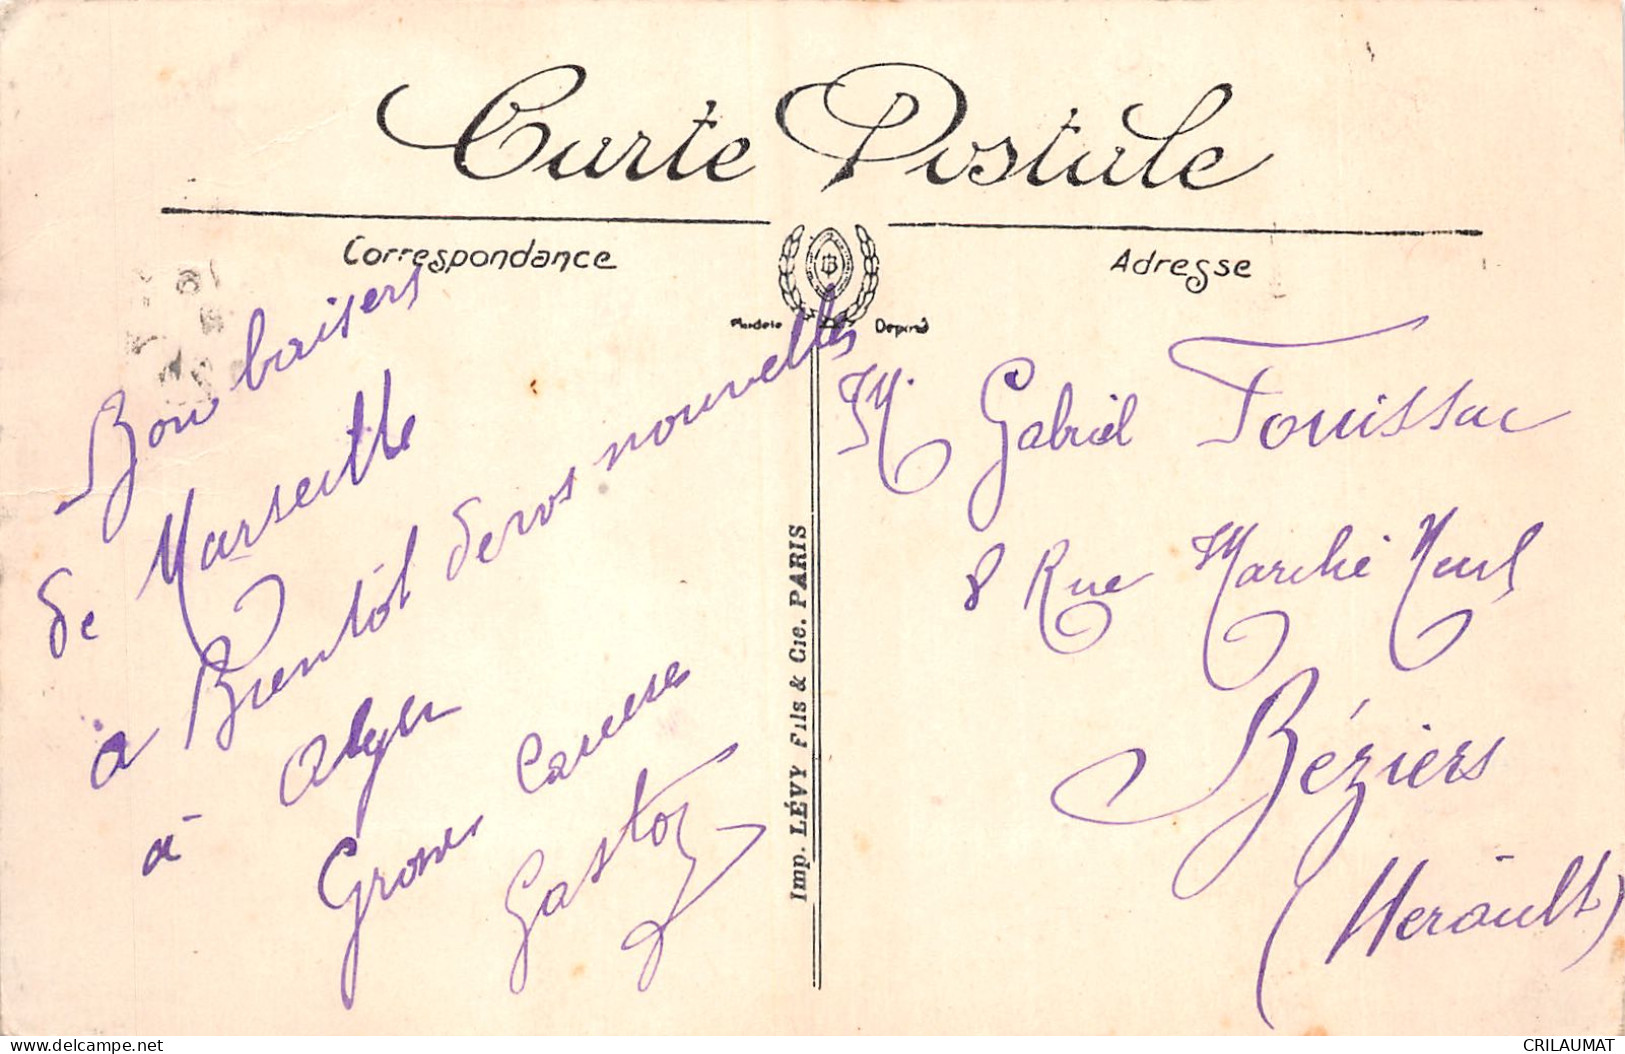 Carte Postale
Correspondance
Adresse
B
Modèle Déposé
Bon baisers
de Marseille
a Bientôt de vos nouvelles
à Alger
Grosses Caresses
Gaston
Imp. LÉVY FILS & Cie. PARIS
M. Gabriel Fouissac
8 Rue Marché Neuf
Béziers
(Herault)
delcampe.net
CRILAUMAT